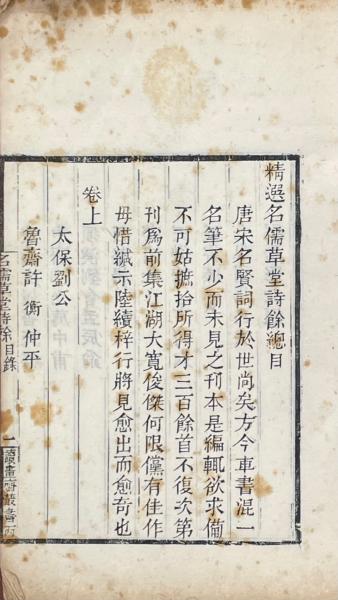 精選名儒草堂詩餘總目
唐宋名賢詞行於世尚矣方今車書混一
名筆不少而未見之刊本是編輒欲求備
不可姑摭拾所得才三百餘首不復次第
刊爲前集江湖大寬俊傑何限儻有佳作
毋惜緘示陸續梓行將見愈出而愈奇也
卷上
太保劉公
魯齋許衡仲平
名儒草堂詩餘目錄
一
讀畫齋叢書